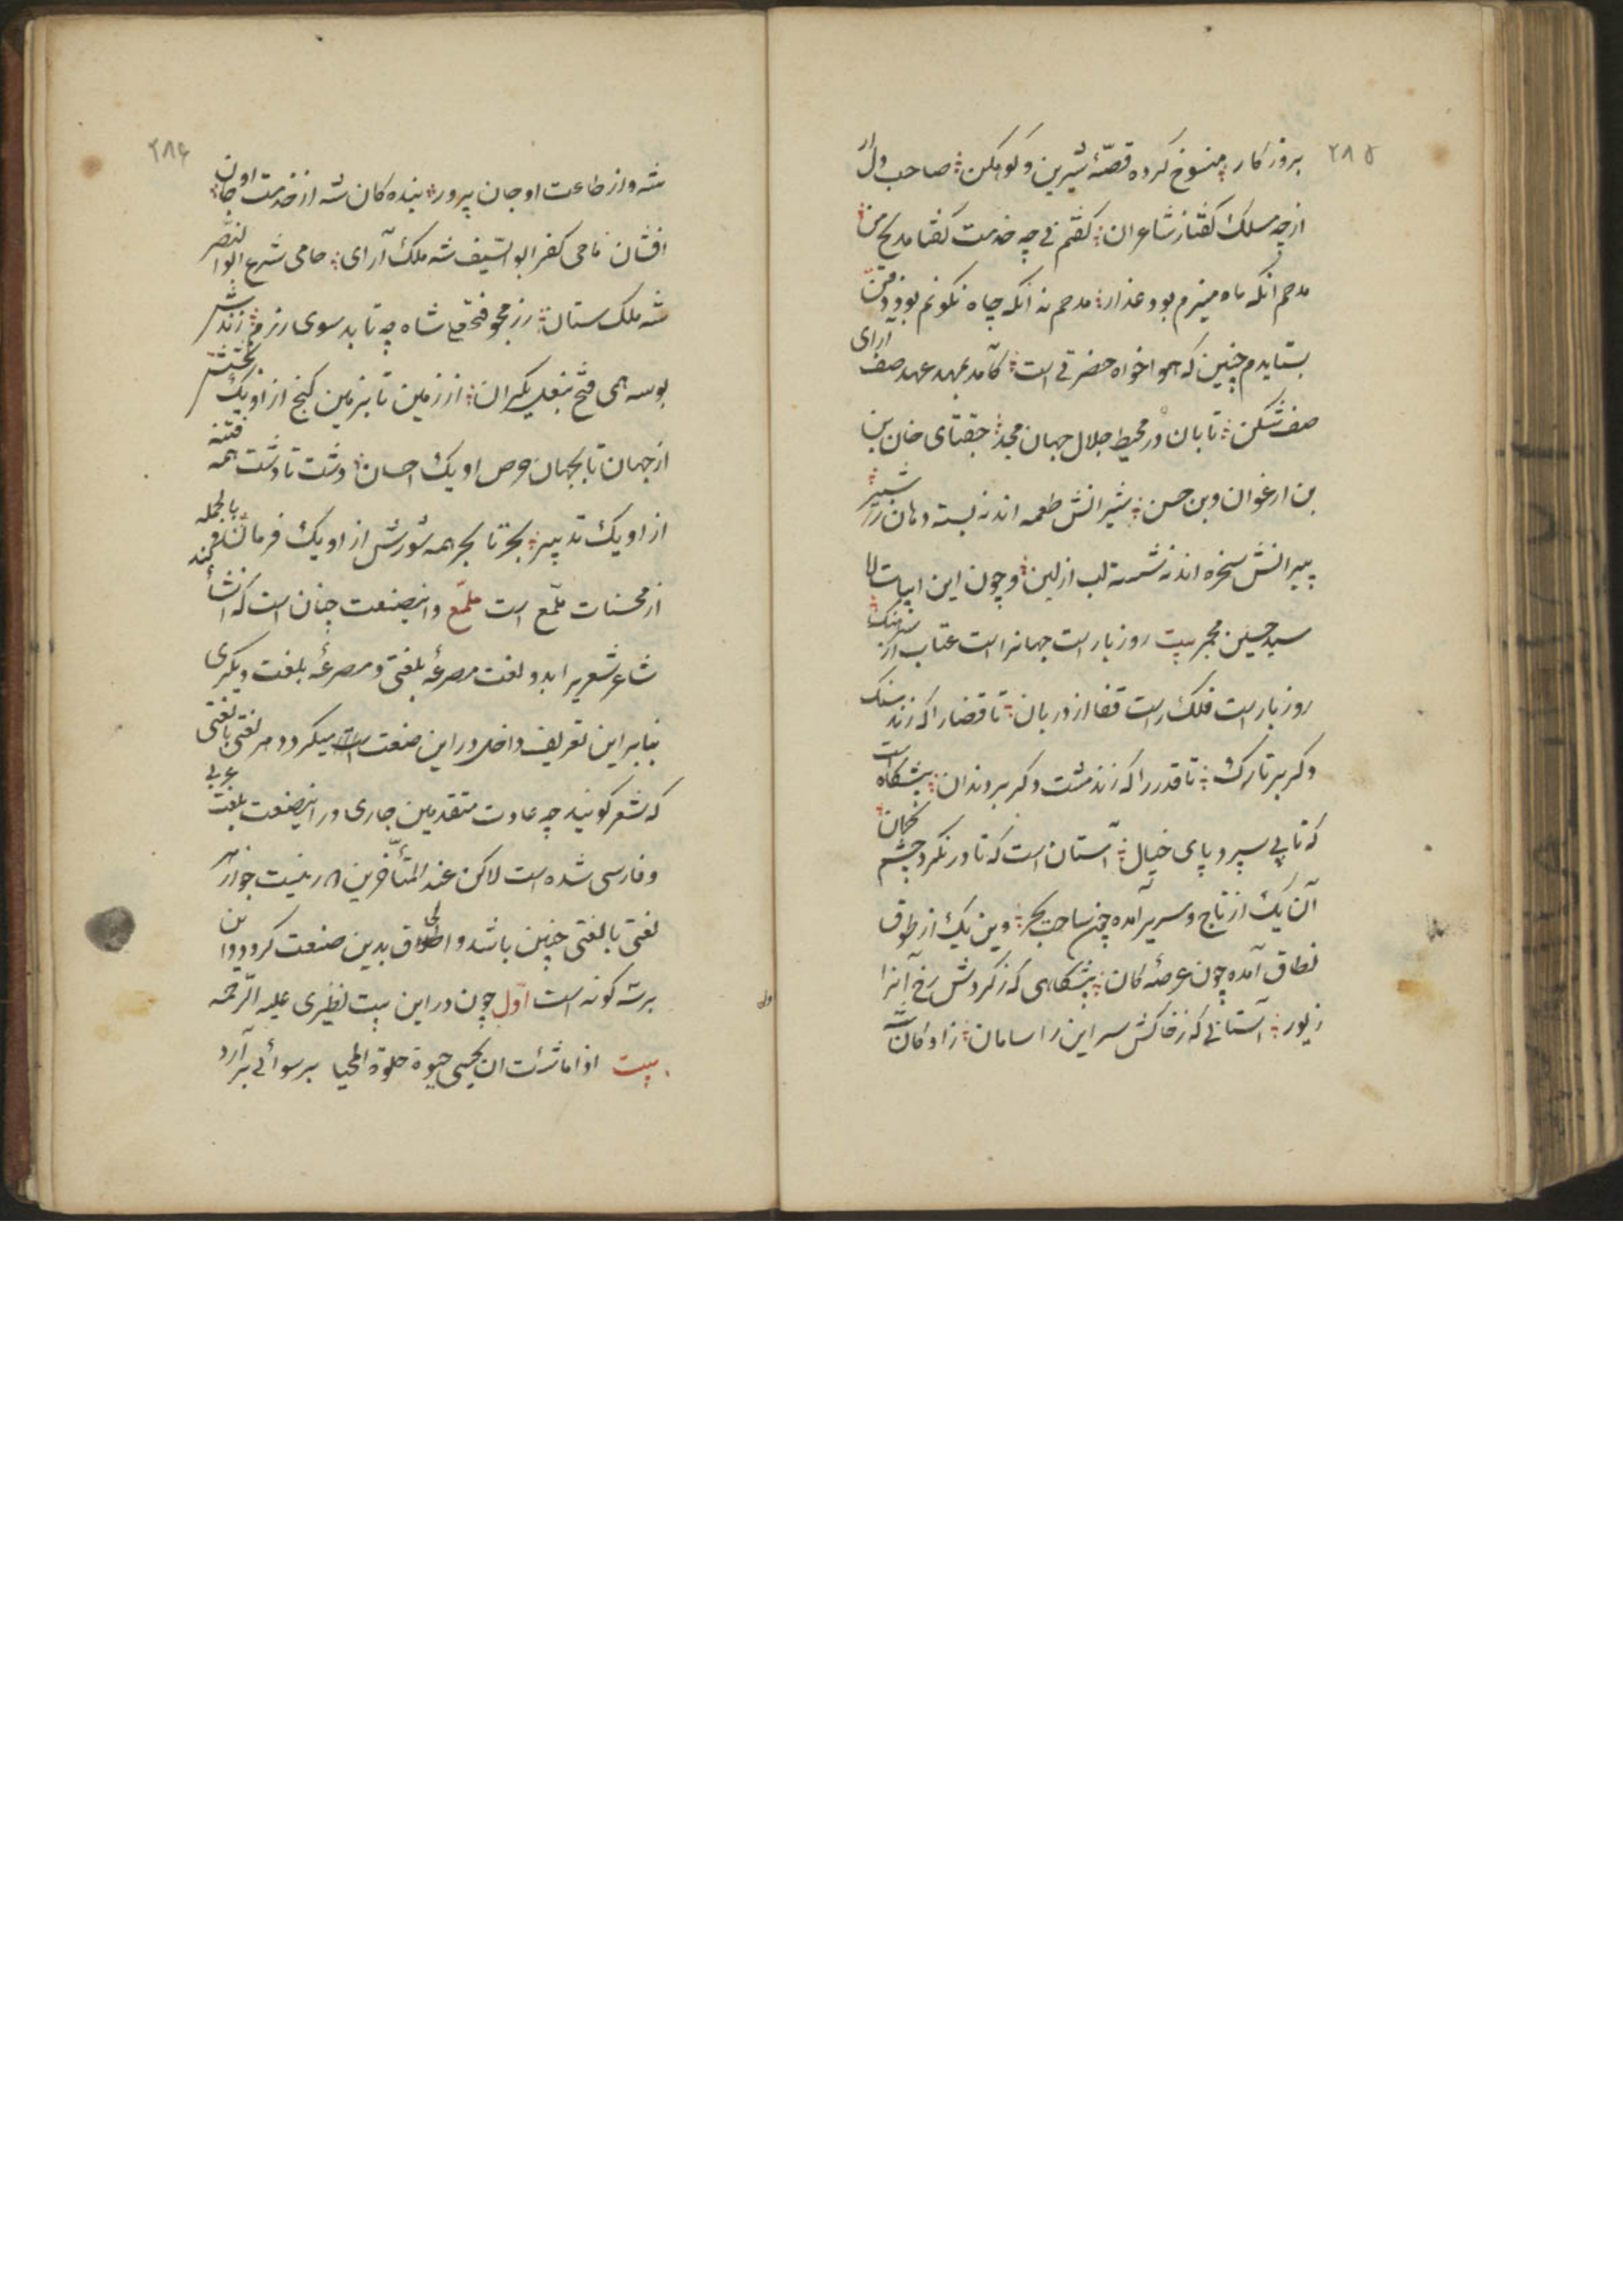 ۲۸۵
بروزکار منسوخ کرده قصّهٔ شیرین و کوهکن صاحب دل ار
ازچه مسلک گفتا ز شاعران گفتم فی چه خدمت گفتا مدیح من
مدحم انکه ماه منیرم بود عذار مدحم نه انکه چاه نکونم بود ذقن
بستایدم چنین که هواخواه حضرتی است کآمد بعهد عهد صف آرای
صف شکن تابان در محیط جلال جهان مجد جغتای خان بن
بن ارغوان و بن حسن شیرانش طعمه اند نه بسته دهان ز شیر
پیرانش سخره اند نه شسته لب از لبن و چون این ابیات
سید حسین مجمر بیت روز بار است جهانرا است عتاب از
روز بار است فلک راست قفا از دربان تا قضا را که زند سنک
و کر بر تارک تا قدر را که زند مشت و کر بر دندان پیشکاه است
که تا پی سپرد پای خیال آستان است که تا درنکرد چشم کمان
آن یک از تاج و سریر آمده چون ساحت بحر وین یک از طوق
نطاق آمده چون عرصهٔ کان پیشکاهی که ز کردش رخ آنرا
زیور آستانی که ز خاکش سر این را سامان زادکان
۲۸۶
شه و از طاعت او جان پرور بنده کان شه از خدمت اون جان
افشان ماحی کفر ابوالسّیف شه ملک آرای حامی شرع ابوالنّصر
شه ملک ستان رزمجو فتحعلی شاه چه تابد سوی رزم زندش
بوسه همی فتح بنعل یکران از زمین تا بزمین کنج از او یک بخشش
از جهان تا بجهان حرص او یک احسان دشت تا دشت همه فتنه
از او یک تدبیر بحر تا بحر همه شورش از او یک فرمان بالجمله
از محسنات ملمّع است ملمّع و اینصنعت چنان است که انشاء کند
شاعر شعریرا بدو لغت مصرعهٔ بلغتی و مصرعهٔ بلغت دیکری
بنابراین تعریف داخل در این صنعت است میکردد هر لغتی با لغتی
که شعر کویند چه عادت متقدمین جاری در اینصنعت بلغت عربی
و فارسی شده است لاکن عند المتأخّرین در نیست جواز هر
لغتی با لغتی چنین باشد و اطلاق بدین صنعت کردد و این
برسه کونه است اوّل چون در این بیت نظیری علیه الرّحمه
بیت اذا ما شئت ان یحیی حیوة حلوة المحیا برسوائی برآرد